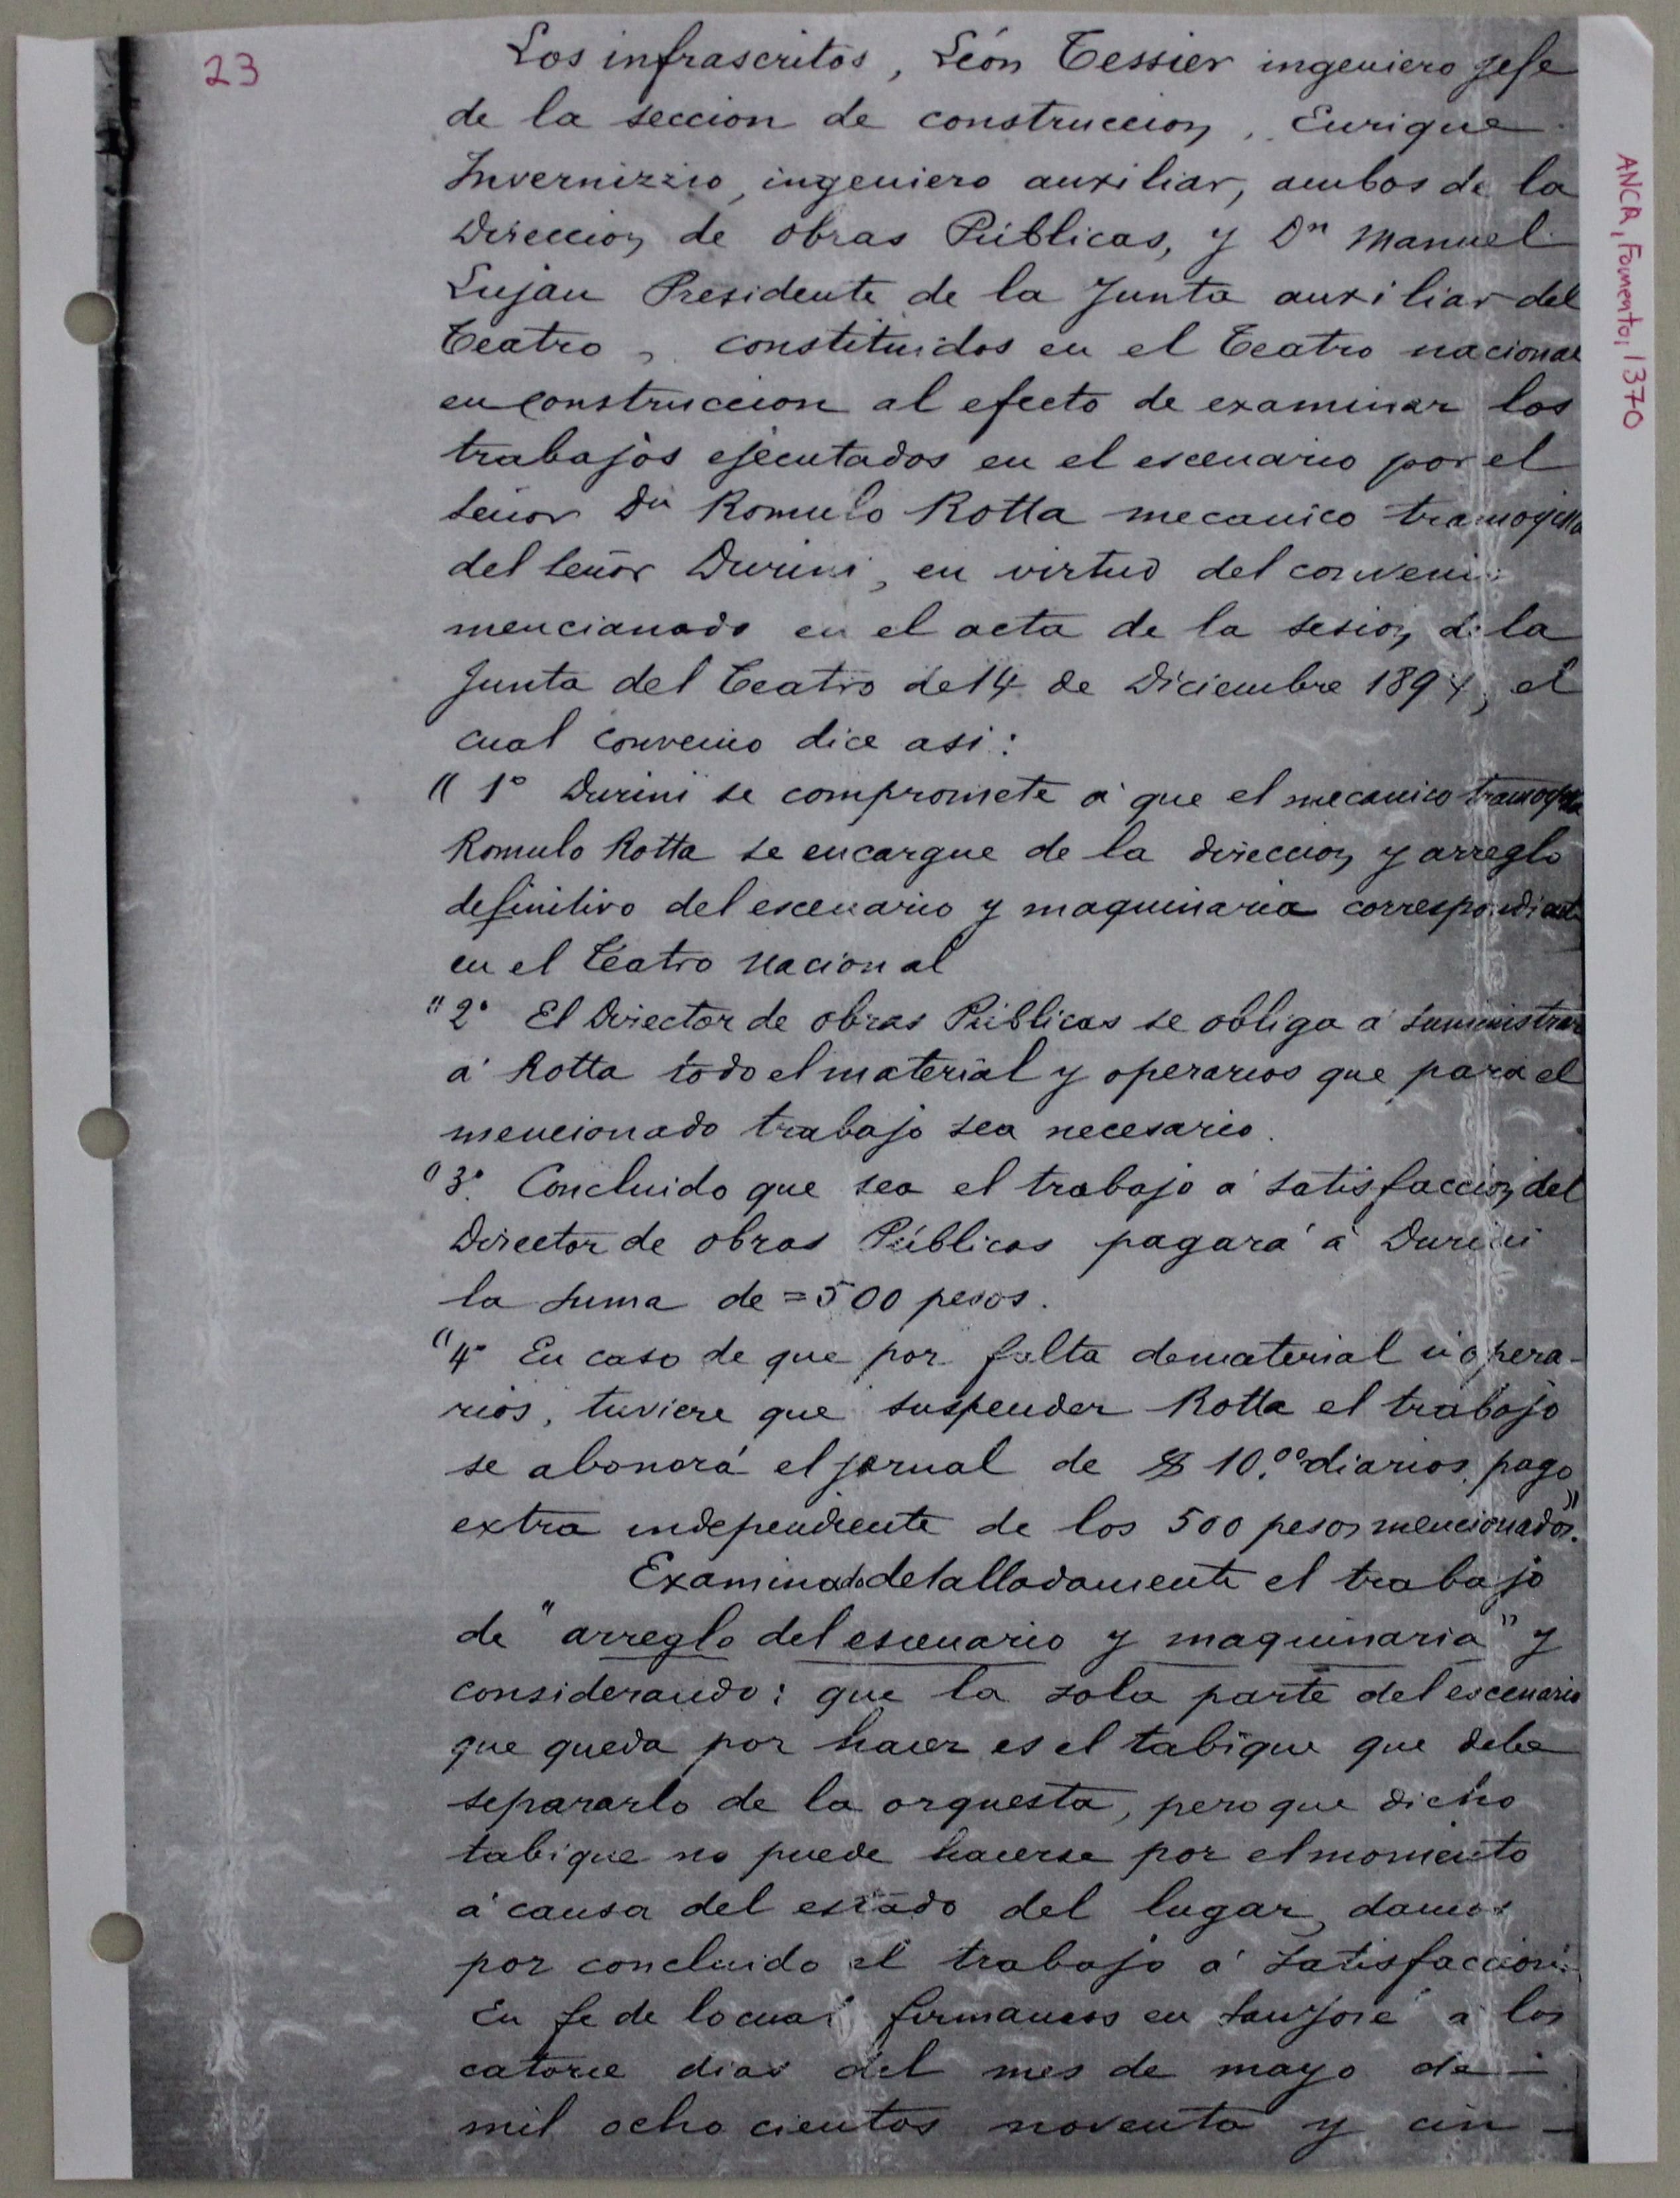 23
ANCR, Fomento, 1370
Los infrascritos, León Tessier ingeniero gefe
de la seccion de construccion, Enrique
Invernizzio, ingeniero auxiliar, ambos de la
Direccion de obras Públicas, y Dn Manuel
Lujan Presidente de la Junta auxiliar del
Teatro, constituidos en el Teatro nacional
en construccion al efecto de examinar los
trabajos ejecutados en el escenario por el
señor Dn Romulo Rotta mecanico tramoyista
del señor Durini, en virtud del convenio
mencionado en el acta de la sesion de la
Junta del Teatro de 14 de Diciembre 1894, el
cual convenio dice asi:
"1° Durini se compromete á que el mecanico tramoyista
Romulo Rotta se encargue de la direccion y arreglo
definitivo del escenario y maquinaria correspondiente
en el Teatro Nacional
"2° El Director de obras Públicas se obliga á suministrar
á Rotta todo el material y operarios que para el
mencionado trabajo sea necesario.
"3°. Concluido que sea el trabajo á satisfaccion del
Director de obras Públicas pagará á Durini
la suma de =500 pesos.
"4° En caso de que por falta de material ú opera-
rios, tuviere que suspender Rotta el trabajo
se abonará el jornal de $ 10.°° diarios, pago
extra independiente de los 500 pesos mencionados".
Examinado detalladamente el trabajo
de "arreglo del escenario y maquinaria" y
considerando: que la sola parte del escenario
que queda por hacer es el tabique que debe
separarlo de la orquesta, pero que dicho
tabique no puede hacerse por el momento
á causa del estado del lugar, damos
por concluido el trabajo á satisfaccion.
En fe de lo cual firmamos en San José á los
catorce dias del mes de mayo de -
mil ocho cientos noventa y cin -